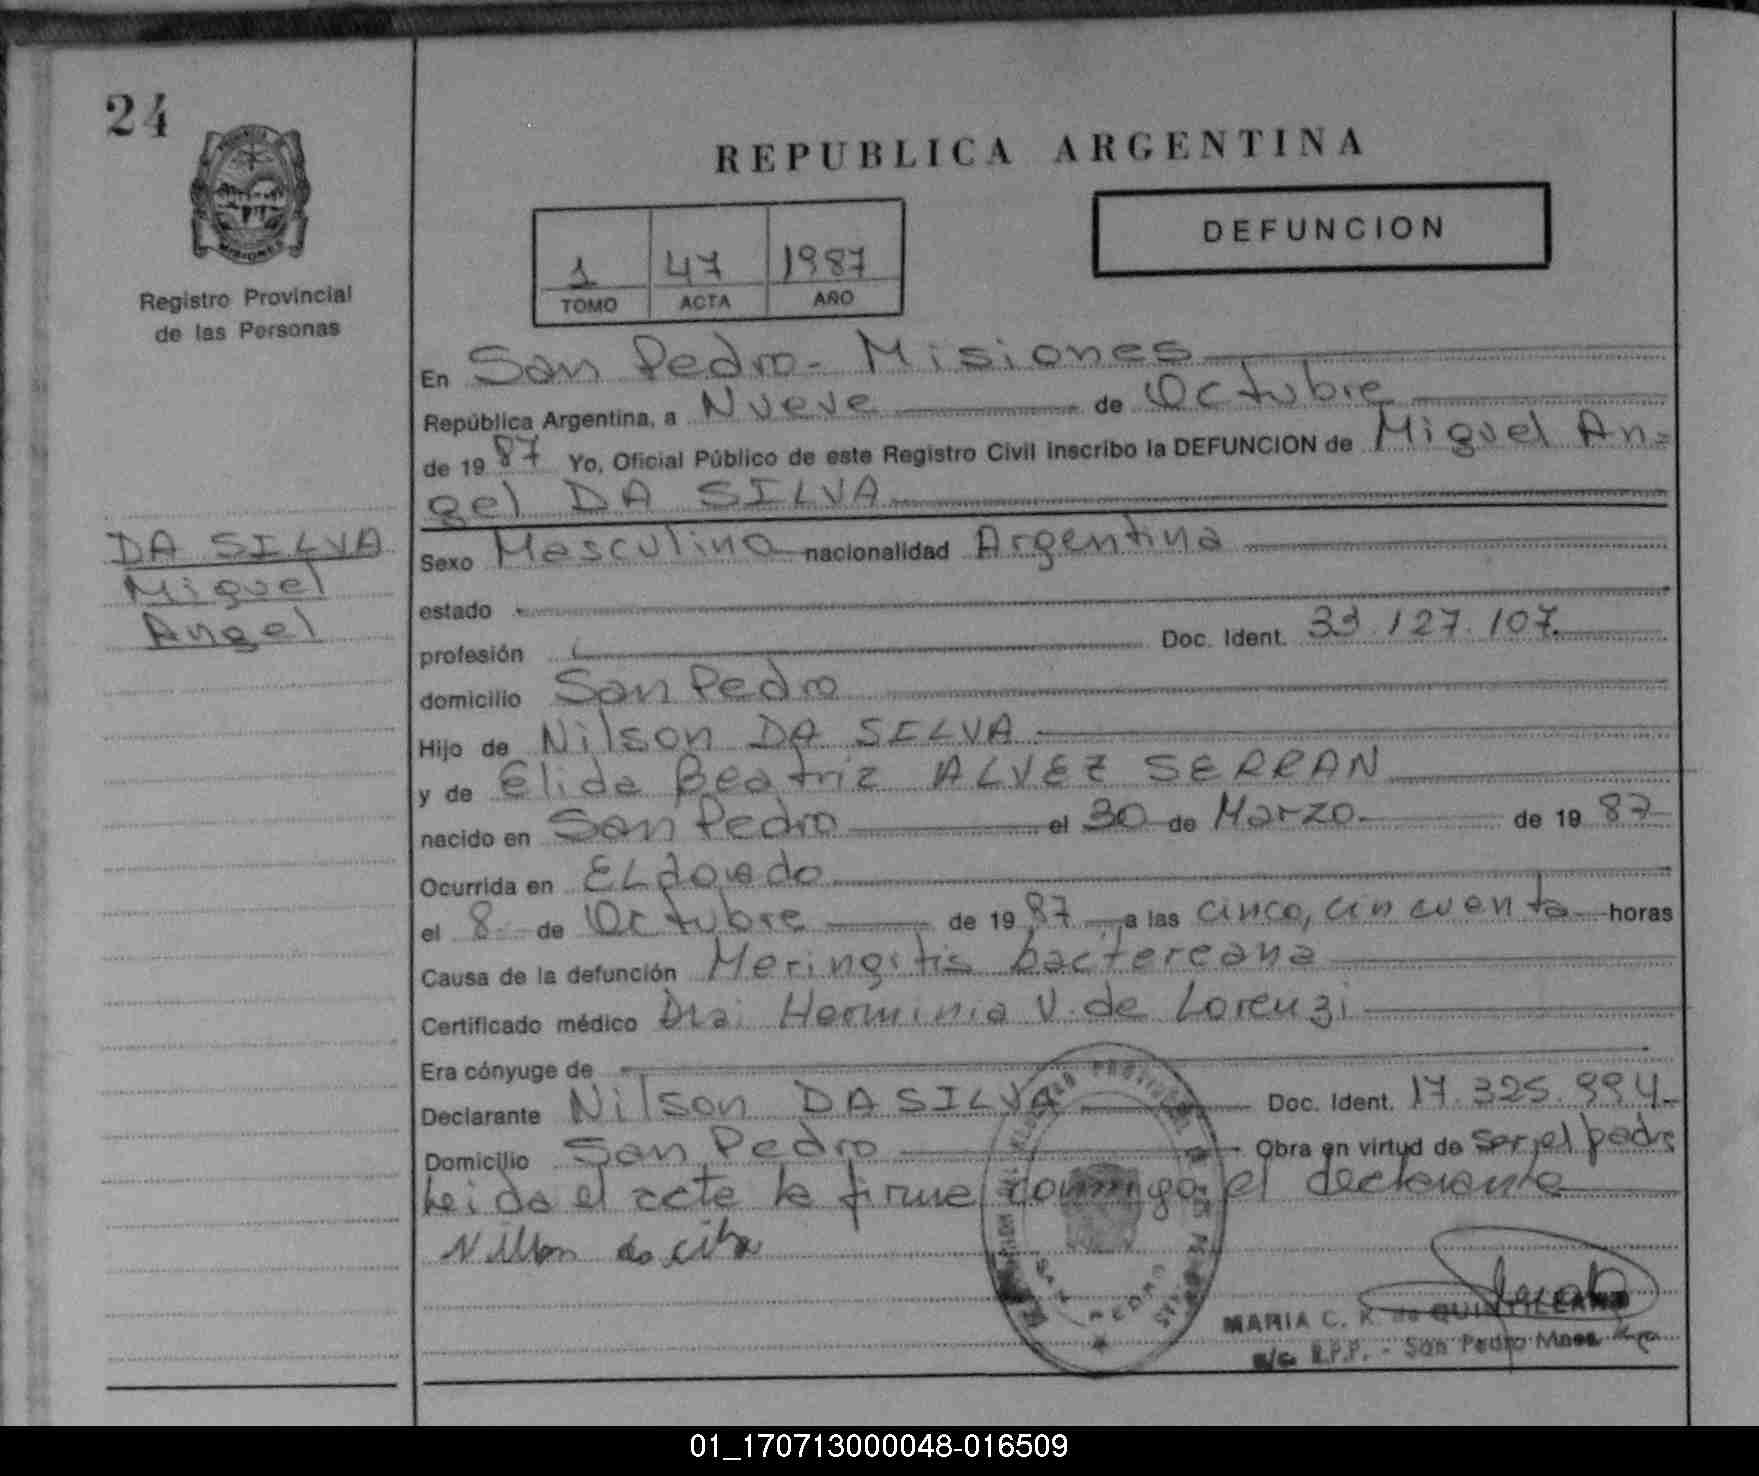 24
Registro Provincial
de las Personas
REPUBLICA ARGENTINA
DEFUNCION
1 47 1987
TOMO ACTA AÑO
En San Pedro - Misiones
República Argentina, a Nueve de Octubre
de 1987 Yo, Oficial Público de este Registro Civil inscribo la DEFUNCION de Miguel An=
gel DA SILVA
DA SILVA
Miguel
Angel
Sexo Masculino nacionalidad Argentina
estado
profesión Doc. Ident. 33.127.107.
domicilio San Pedro
Hijo de Nilson DA SILVA
y de Elida Beatriz ALVEZ SERRAN
nacido en San Pedro el 30 de Marzo de 1987
Ocurrida en ELdorado
el 8 de Octubre de 1987 a las cinco, cincuenta horas
Causa de la defunción Meringitis bactereana
Certificado médico Dra: Herminia V. de Lorenzi
Era cónyuge de
Declarante Nilson DA SILVA Doc. Ident. 17.325.994-
Domicilio San Pedro Obra en virtud de ser el padre
Leida el acta la firma conmigo el declarante
Nilson da cilva
SAN PEDRO
MARIA C. R. de
a/c. R.P.P. - San Pedro Mnes.
01_170713000048-016509